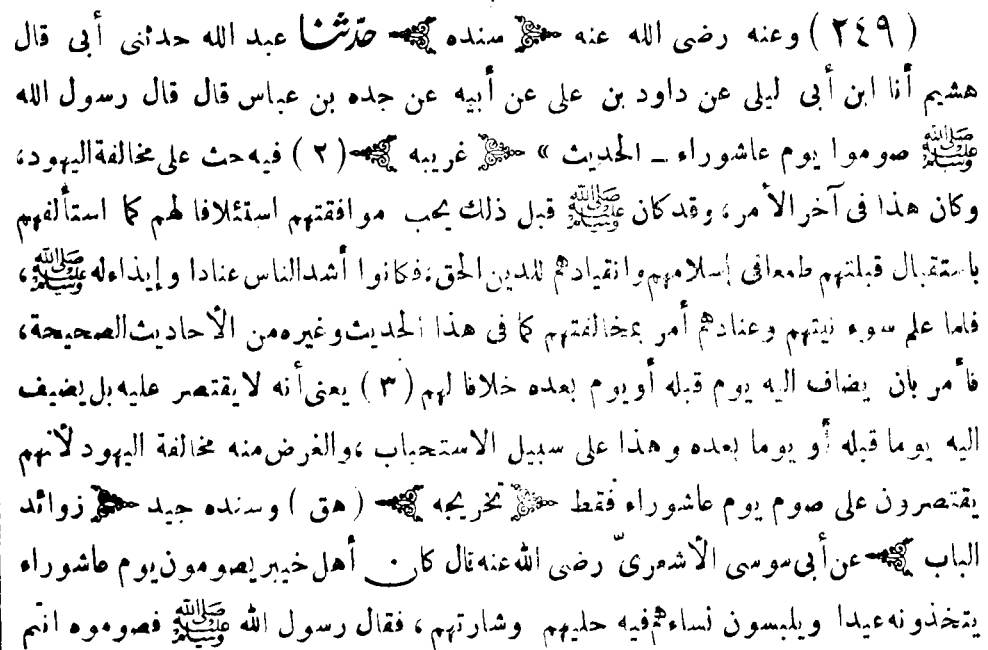 (٢٤٩) وعنه رضى الله عنه ﴿ سنده ﴾ حدّثنا عبد الله حدثنى أبى قال
هشيم أنا ابن أبى ليلى عن داود بن على عن أبيه عن جده بن عباس قال قال رسول الله
ﷺ صوموا يوم عاشوراء ــ الحديث » ﴿ غريبه ﴾ (٢) فيه حث على مخالفة اليهود،
وكان هذا فى آخر الأمر، وقد كان ﷺ قبل ذلك يحب موافقتهم استئلافا لهم كما استألفهم
باستقبال قبلتهم طمعا فى إسلامهم وانقيادهم للدين الحق، فكانوا أشد الناس عنادا وإيذاء له ﷺ،
فلما علم سوء نيتهم وعنادهم أمر بمخالفتهم كما فى هذا الحديث وغيره من الأحاديث الصحيحة،
فأمر بان يضاف اليه يوم قبله أو يوم بعده خلافا لهم (٣) يعنى أنه لا يقتصر عليه بل يضيف
اليه يوما قبله أو يوما بعده وهذا على سبيل الاستحباب، والغرض منه مخالفة اليهود لأنهم
يقتصرون على صوم يوم عاشوراء فقط ﴿ تخريجه ﴾ (هق) وسنده جيد ﴿ زوائد
الباب ﴾ عن أبى موسى الأشعرىّ رضى الله عنه قال كان أهل خيبر يصومون يوم عاشوراء
يتخذونه عيدا ويلبسون نساءهم فيه حليهم وشارتهم، فقال رسول الله ﷺ فصوموه انتم